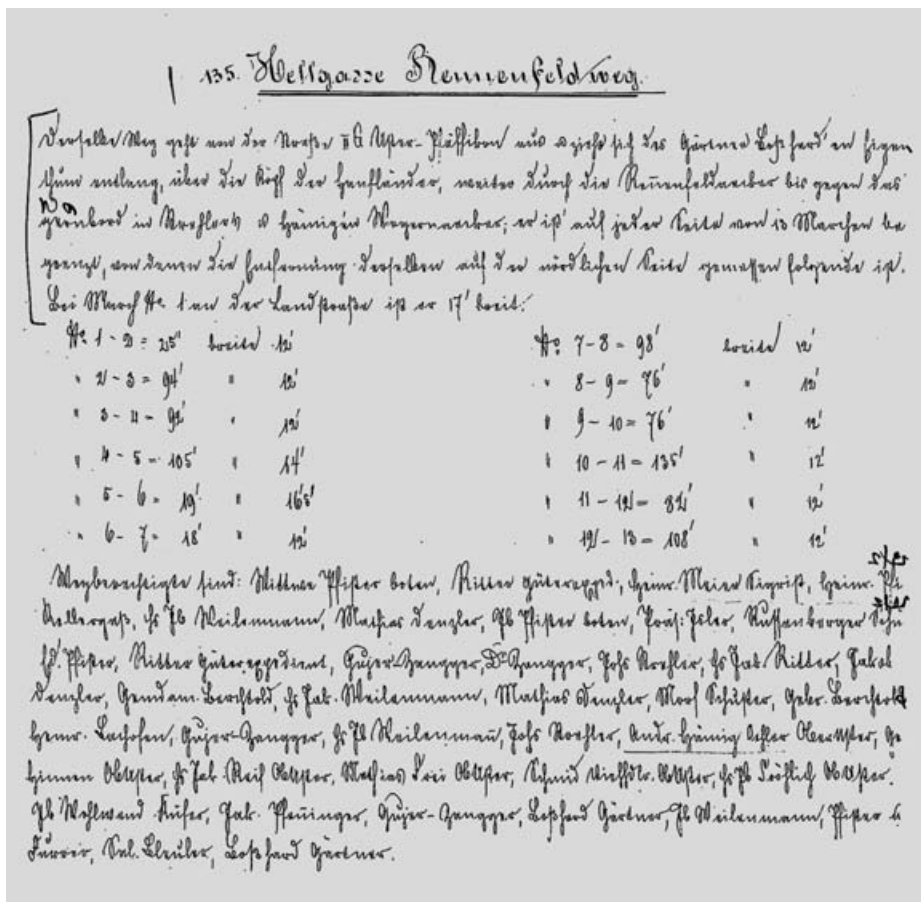 135. Hellgasse Rennenfeldweg.
Derselbe Weg geht von der Straße II Cl Uster-Pfäffikon aus u zieht sich des Gärtner Boßhard'en Eigen
thum entlang, über die Köpf der Hanfländer, weiter durch die Rennenfeldäcker bis gegen das
in Strehlers u Hämigen Wegernäcker; er ist auf jeder Seite von 13 Marchen be
grenzt, von denen die Entfernung derselben auf der nördlichen Seite gemessen folgende ist.
Bei March No. 1 an der Landstraße ist er 17' breit.
No 1 - 2 = 25' breite 12' No 7-8 = 98' breite 12'
" 2 - 3 = 94' " 12' " 8-9 = 76' " 12'
" 3-4 = 92' " 12' " 9-10 = 76' " 12'
" 4-5 = 105' " 14' " 10-11 = 135' " 12'
" 5-6 = 19' " 16'5' " 11-12 = 82' " 12'
" 6-7 = 18' " 12' " 12-13 = 108' " 12'
Wegberechtigte sind: Wittwe Pfister boten, Ritter güterexped:, Heinr. Meier Sigrist, Heinr. Pfi
Kellergaß, Hs Jb Weilenmann, Mathias Denzler, Jb Pfister boten, Präs: Isler, Russenberger Schu
Hd. Pfister, Ritter güterexpedient, Gujer-Zangger, Dr Zangger, Johs Strehler, Hs Jak. Ritter, Jakob
Denzler, Gendam. Berchtold, Hs Jak. Weilenmann, Mathias Denzler, Morf Schuster, Gebr. Berchtold
Heinr. Bachofen, Gujer-Zangger, Hs Jb Weilenmañ, Johs Strehler, Andr. Hämig Oberuster, Ge
Obuster, Hs Jak. Reif Obuster, Mathias Frei Obuster, Schmid Viehhdlr. Obuster, Hs Jb Fröhlich Obuster.
Jb Wohlwend Küfer, Jak. Pfenninger, Gujer-Zangger, Boßhard Gärtner, Jb Weilenmann, Pfister &
Furrer, Sal. Bleuler, Boßhard Gärtner.